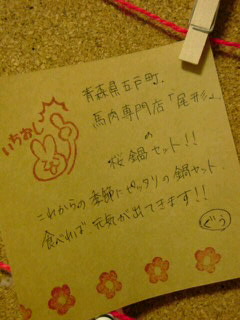 いちおし
青森県五戸町、
馬肉専門店「尾形」
の
桜鍋セット!!
これからの季節にピッタリの鍋セット
食べれば元気が出てきます!!
ぐう